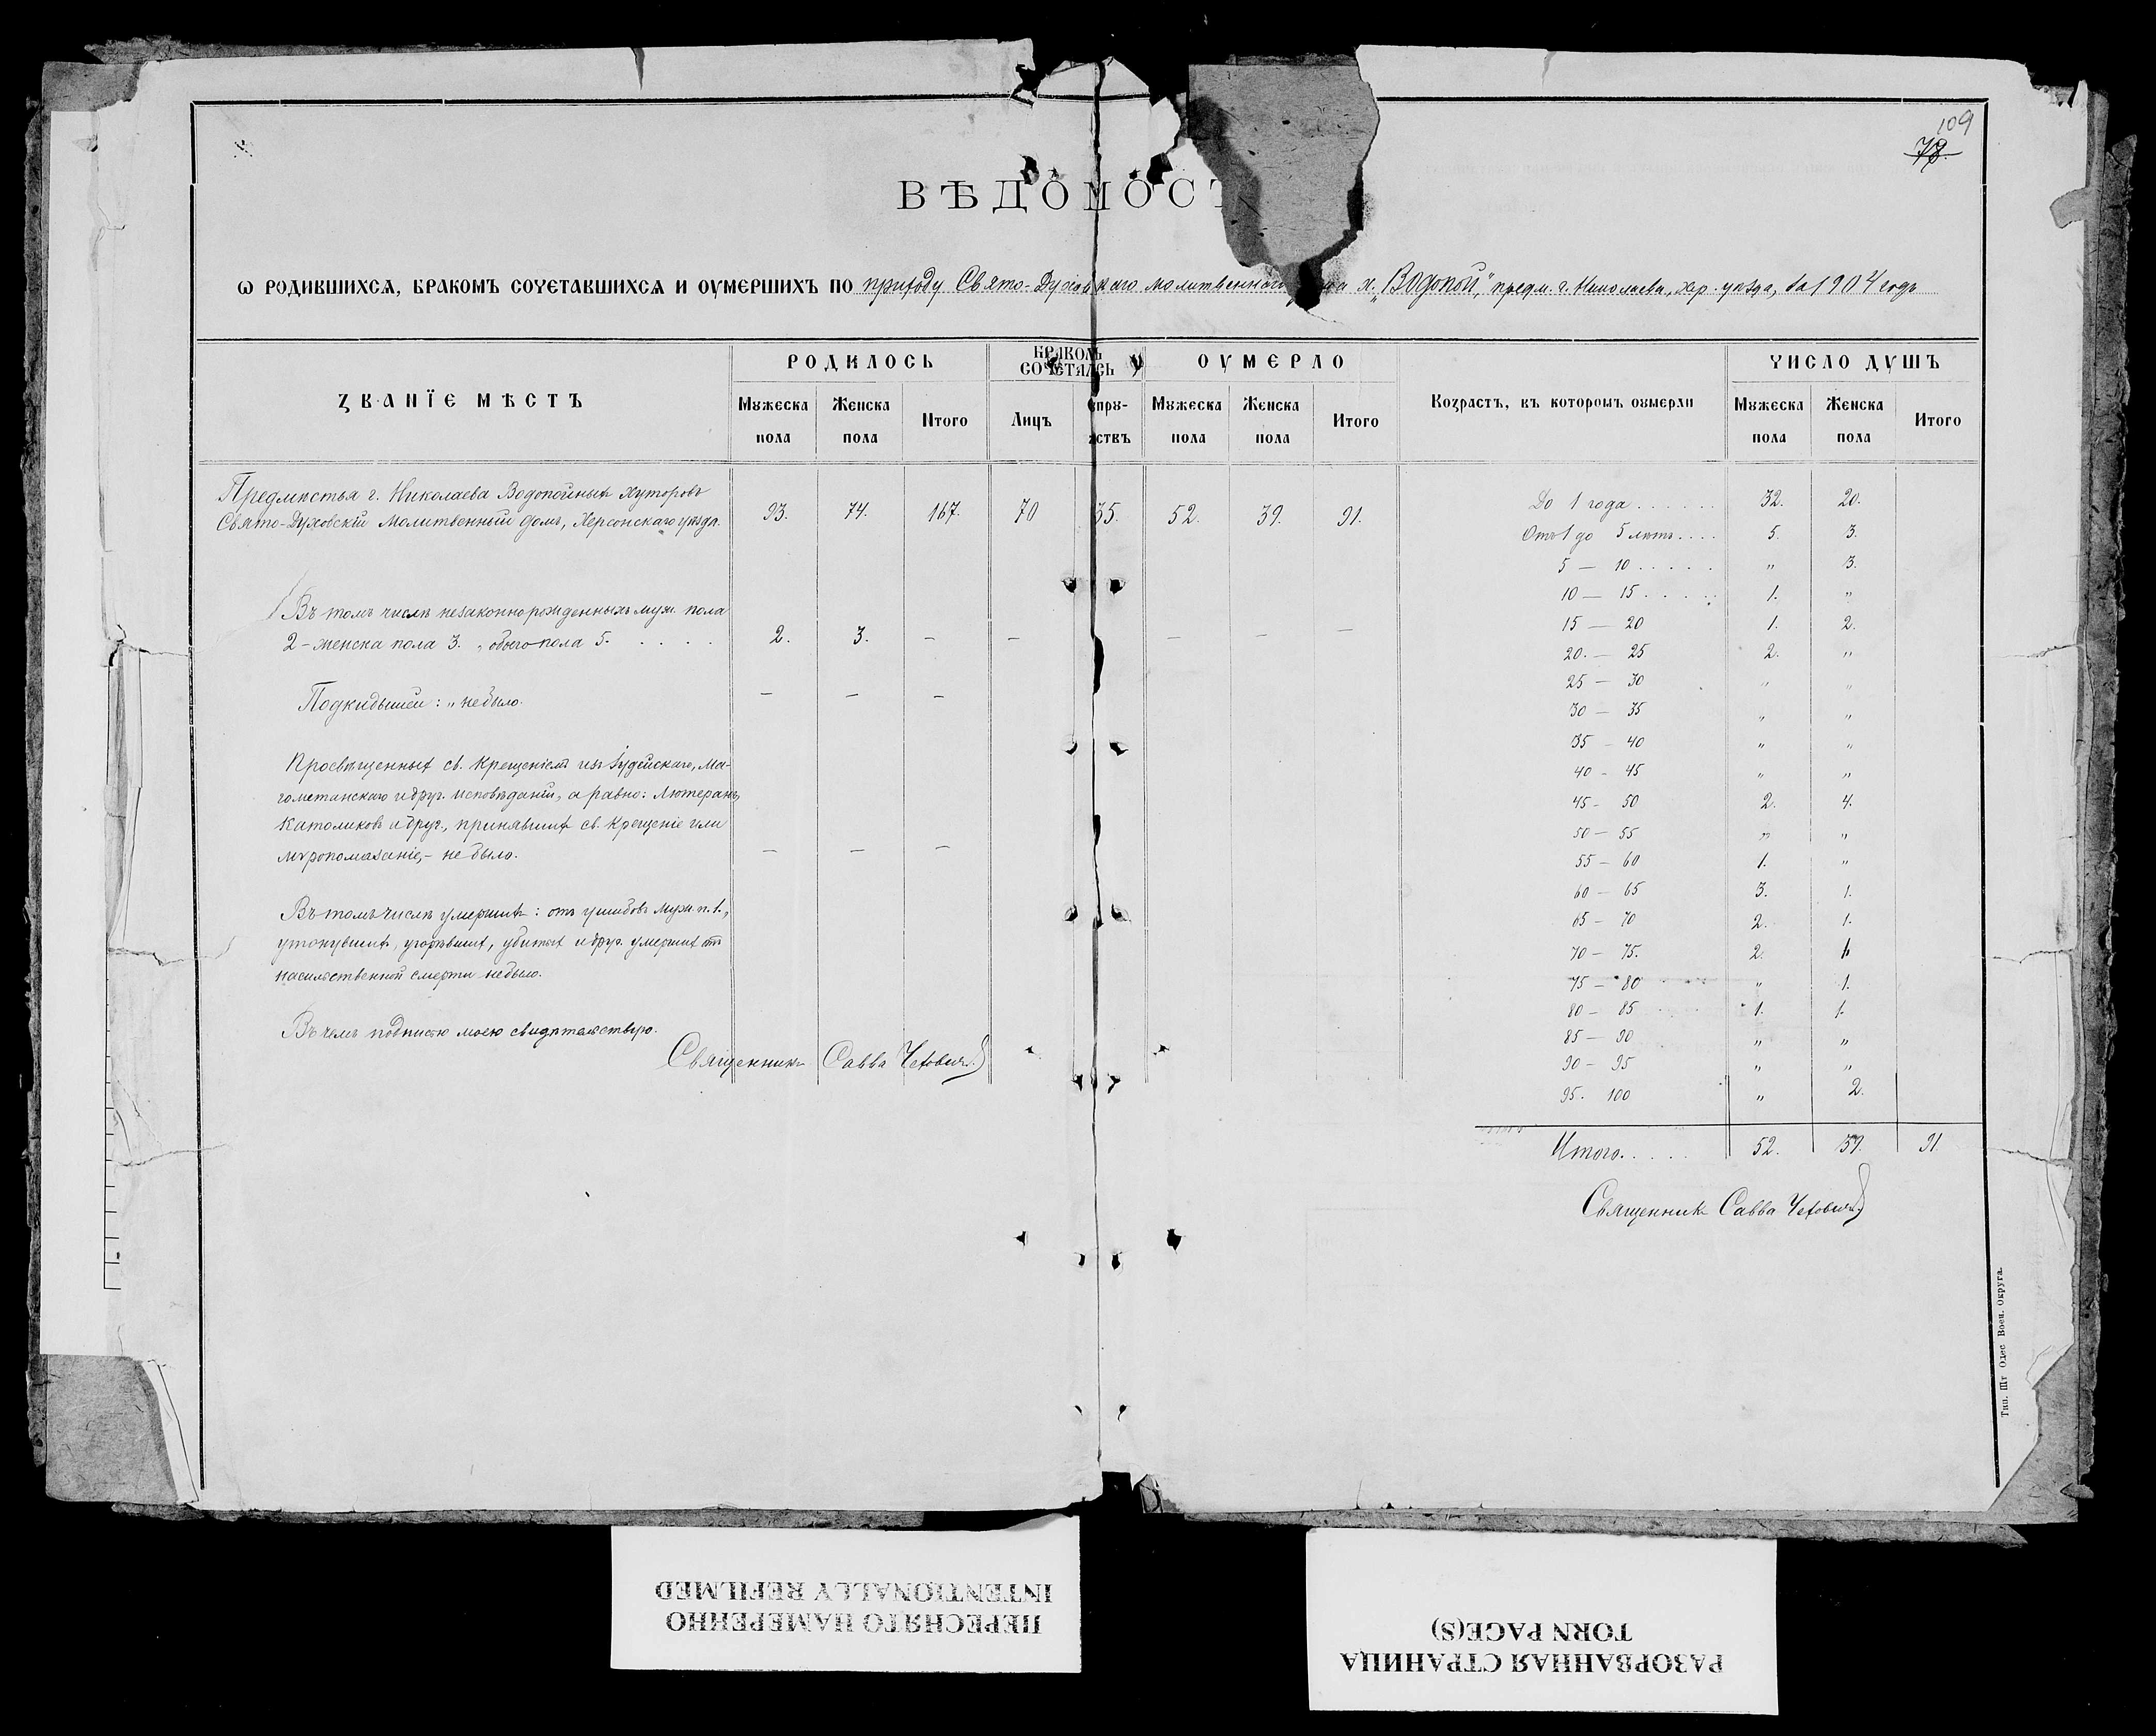 109
78.
ВѢДОМОСТ
Ѡ РОДИВШИХСѦ, БРАКОМЪ СОЧЕТАВШИХСѦ И ОУМЕРШИХЪ ПО приходу Свято-Духовскаго молитвеннаго х. „Водопой", предм. г. Николаева, хер. уѣзда, за 1904 годъ
ЗВАНЇЕ МѢСТЪ
РОДИЛОСЬ
БРАКОМЪ СОЧЕТАЛСЬ
ОУМЕРЛО
Возрастъ, въ которомъ оумерли
ЧИСЛО ДУШЪ
Мужеска пола
Женска пола
Итого
Лицъ
Супружествъ
Мужеска пола
Женска пола
Итого
Мужеска пола
Женска пола
Итого
Предмѣстья г. Николаева Водопойныхъ хуторовъ
Свято-Духовскій Молитвенный домъ, Херсонскаго уѣзда. 93. 74. 167. 70 35. 52. 39. 91.
Въ томъ числѣ незаконнорожденныхъ муж. пола
2 - женска пола 3. „ обоего пола 5. . . . . 2. 3. – – – – –
Подкидышей: „ не было. – – –
Просвѣщенныхъ св. Крещеніемъ изъ Іудейскаго, Ма-
гометанскаго и друг. исповѣданій, а равно: Лютеранъ,
Католиковъ и друг., принявшихъ св. Крещеніе или
мѵропомазаніе,- не было. – – –
Въ томъ числѣ умершихъ: отъ ушибовъ муж. п. 1.,
утонувшихъ, угорѣвшихъ, убитыхъ и друг. умершихъ отъ
насильственной смерти не было.
Въ чемъ подписью моею свидѣтельствую.
Священникъ Савва Чехович.
До 1 года . . . . . . 32. 20.
Отъ 1 до 5 лѣтъ . . . . 5. 3.
5 — 10 . . . . . „ 3.
10 — 15 . . . . . 1. „
15 — 20 1. 2.
20. — 25 2. „
25 — 30 „ „
30 — 35 „ „
35 - 40 „ „
40 - 45 „ „
45 - 50 2. 4.
50 — 55 „ „
55 — 60 1. „
60 — 65 3. 1.
65 — 70 2. 1.
70 — 75. 2. 1.
75 — 80 „ 1.
80 - 85 1. 1.
85 — 90 „ „
90 — 95 „ „
95. 100 „ 2.
Итого. . . . . 52. 39. 91.
Священник Савва Чехович
Тип. Шт. Одес Воен. Округа.
ПЕРЕСНЯТО НАМЕРЕННО
INTENTIONALLY REFILMED
РАЗОРВАННАЯ СТРАНИЦА
TORN PAGE(S)